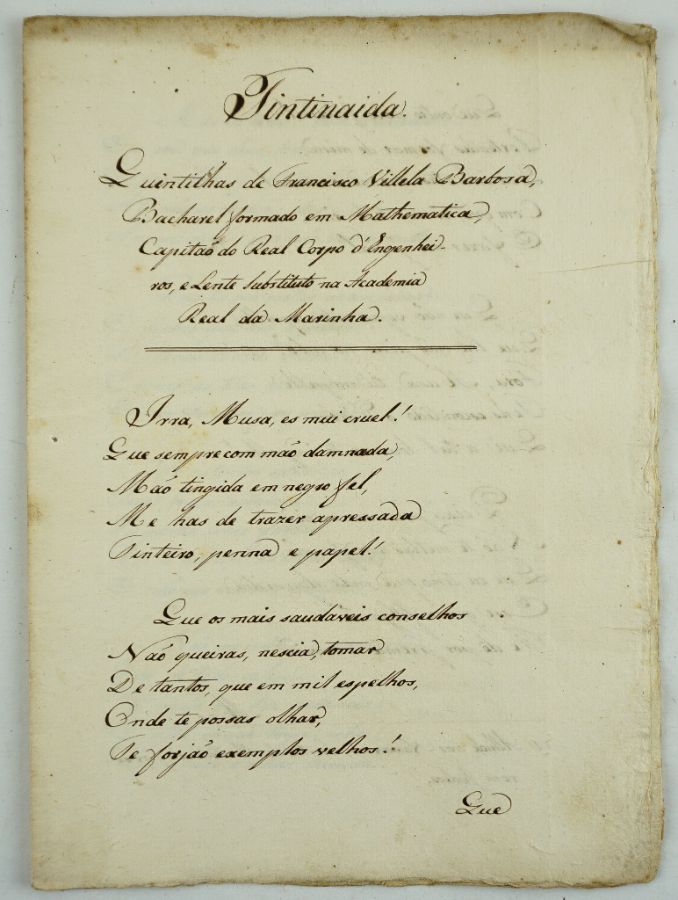 Tintinaida.
Quintilhas de Francisco Villela Barbosa,
Bacharel formado em Mathematica,
Capitaõ do Real Corpo d'Engenhei-
ros, e Lente Substituto na Academia
Real da Marinha.
Irra, Musa, es mui cruel!
Que sempre com mão damnada,
Mão tingida em negro fel,
Me has de trazer apressada
Tinteiro, penna e papel!
Que os mais saudáveis conselhos
Naõ queiras, nescia, tomar
De tantos, que em mil espelhos,
Onde te possas olhar,
Te forjaõ exemplos velhos!
Que